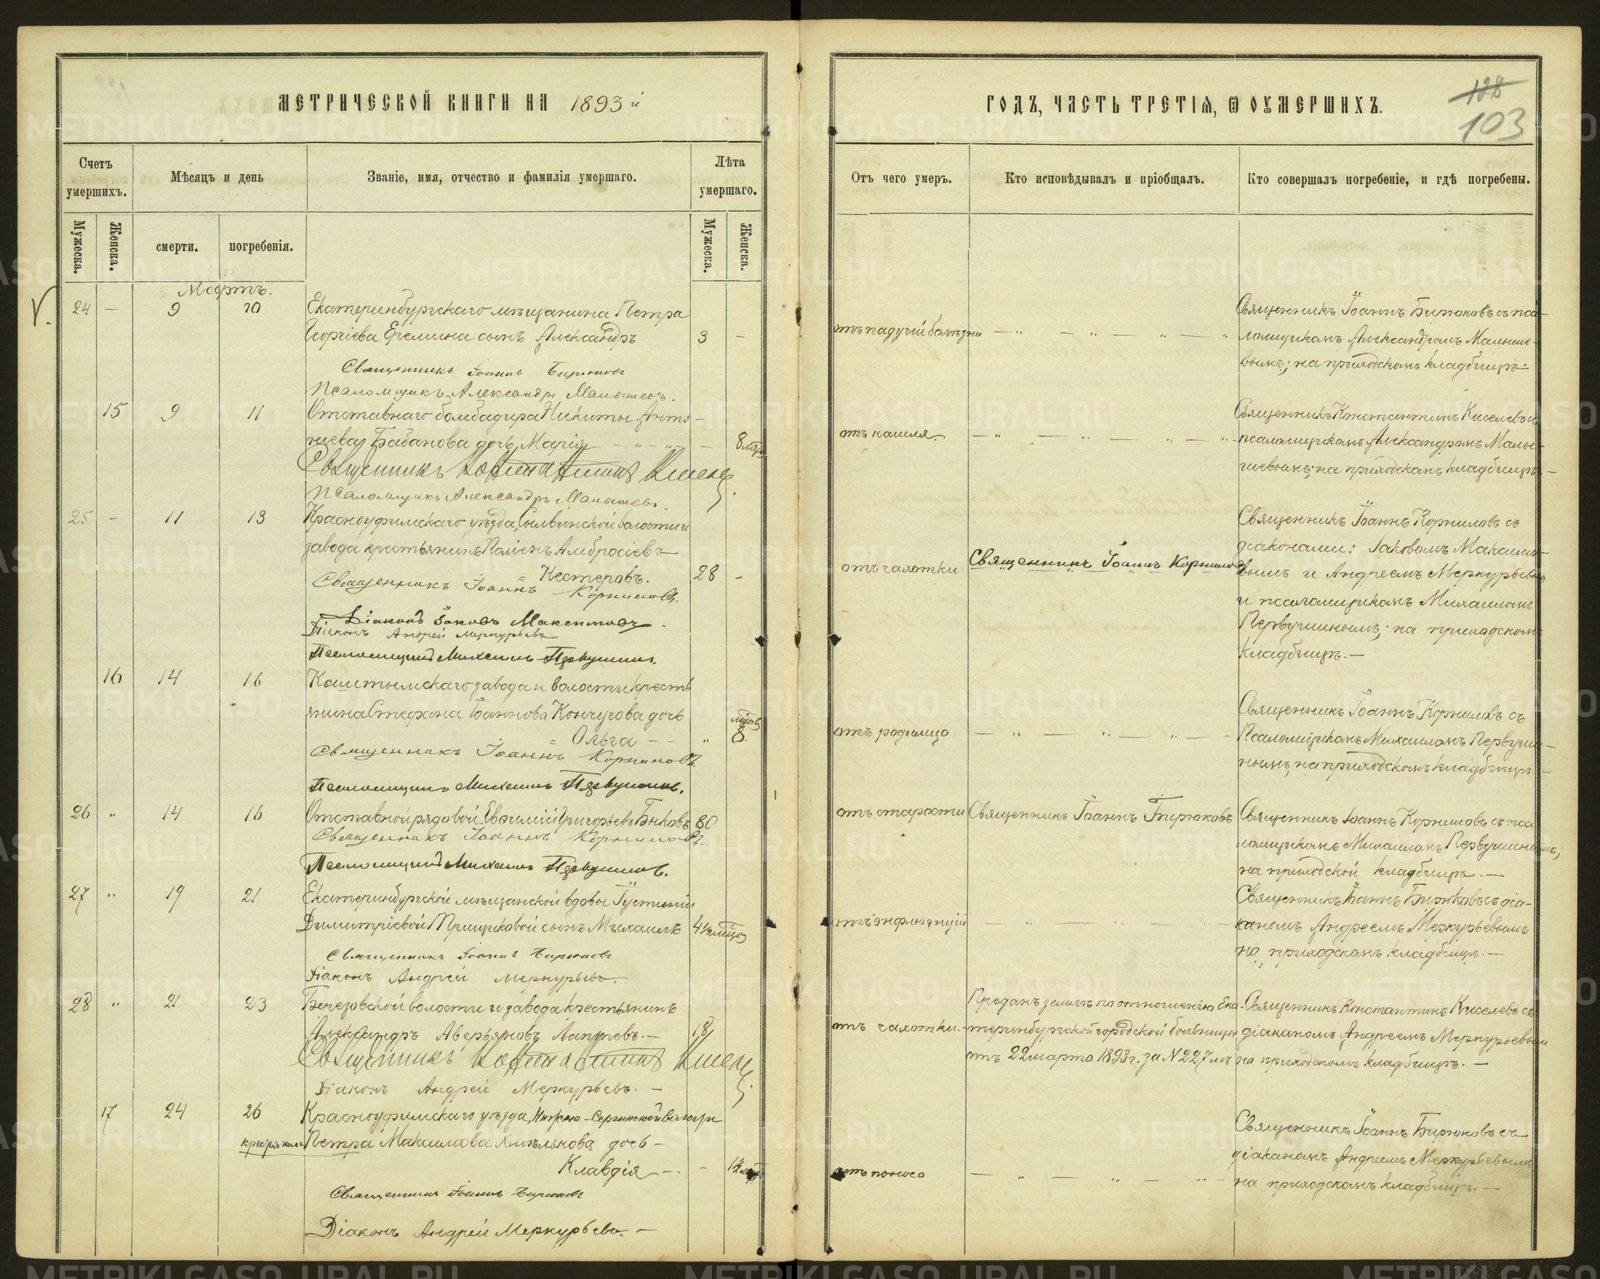 МЕТРИЧЕСКОЙ КНИГИ НА 1893 й
ГОДЪ, ЧАСТЬ ТРЕТІЯ, Ѿ ОУМЕРШИХЪ.
128
103
Счетъ умершихъ.
Мѣсяцъ и день
Званіе, имя, отчество и фамилія умершаго.
Лѣта умершаго.
Отъ чего умеръ.
Кто исповѣдывалъ и пріобщалъ.
Кто совершалъ погребеніе, и гдѣ погребены.
Мужеска.
Женска.
смерти.
погребенія.
Мужеска.
Женска.
Мартъ.
24 — 9 10
Екатеринбургскаго мѣщанина Петра
Георгіева сынъ Александръ 3 —
Священникъ Іоаннъ Бирюковъ
Псаломщикъ Александръ Малышевъ.
отъ падучей болѣзни
Священникъ Іоаннъ Бирюковъ съ пса-
ломщикомъ Александромъ Малыше-
вымъ; на приходскомъ кладбищѣ.—
15 9 11
Отставнаго бомбадира Никиты Анто-
ніева Бабанова дочь Марія 8
Священникъ Константинъ Киселевъ
Псаломщикъ Александръ Малышевъ.
отъ кашля.
Священникъ Константинъ Киселевъ съ
псаломщикомъ Александромъ Малы-
шевымъ; на приходскомъ кладбищѣ.—
25 — 11 13
Красноуфимскаго уѣзда, Сылвинской волости и
завода крестьянинъ Амбросіевъ
Нестеровъ. 28 —
Священникъ Іоаннъ Корниловъ.
Діаконъ Іаковъ Максимовъ.
Діаконъ Андрей Меркурьевъ
Псаломщикъ Михаилъ Первушинъ.
отъ чахотки
Священникъ Іоаннъ Корниловъ
Священникъ Іоаннъ Корниловъ съ
діаконами: Іаковомъ Максимо-
вымъ и Андреемъ Меркурьевымъ
и псаломщикомъ Михаиломъ
Первушинымъ; на приходскомъ
кладбищѣ.—
16 14 16
Кыштымскаго завода и волости кресть-
янина Стефана Іоаннова дочь
Ольга 8
Священникъ Іоаннъ Корниловъ.
Псаломщикъ Михаилъ Первушинъ.
отъ родимца
Священникъ Іоаннъ Корниловъ съ
Псаломщикомъ Михаиломъ Первуши-
нымъ, на приходскомъ кладбищѣ.—
26 14 16
Отставной рядовой Григорьевъ Быковъ 80
Священникъ Іоаннъ Корниловъ.
Псаломщикъ Михаилъ Первушинъ.
отъ старости
Священникъ Іоаннъ Бирюковъ
Священникъ Іоаннъ Корниловъ съ пса-
ломщикомъ Михаиломъ Первушинымъ;
на приходской кладбищѣ.—
27 19 21
Екатеринбургской мѣщанской вдовы Іустиніи
Димитріевой сынъ Михаилъ 4
Священникъ Іоаннъ Бирюковъ
Діаконъ Андрей Меркурьевъ
отъ инфлюэнціи
Священникъ Іоаннъ Бирюковъ съ діа-
кономъ Андреемъ Меркурьевымъ
на приходскомъ кладбищѣ.—
28 21 23
Березовской волости и завода крестьянинъ
Александръ Аверьяновъ 18
Священникъ Константинъ Киселевъ
Діаконъ Андрей Меркурьевъ.—
отъ чахотки.
Преданъ землѣ по отношенію Ека-
теринбургской городской больницы
отъ 22 марта 1893 г. за № 227
Священникъ Константинъ Киселевъ съ
діакономъ Андреемъ Меркурьевымъ
на приходскомъ кладбищѣ.—
17 24 26
Красноуфимскаго уѣзда, Нижне-Сергинской волости
крестьянина Петра Максимова Хмѣлькова дочь—
Клавдія
Священникъ Іоаннъ Бирюковъ
Діаконъ Андрей Меркурьевъ.—
отъ поноса
Священникъ Іоаннъ Бирюковъ съ
діакономъ Андреемъ Меркурьевымъ
на приходскомъ кладбищѣ.—
METRIKI.GASO-URAL.RU